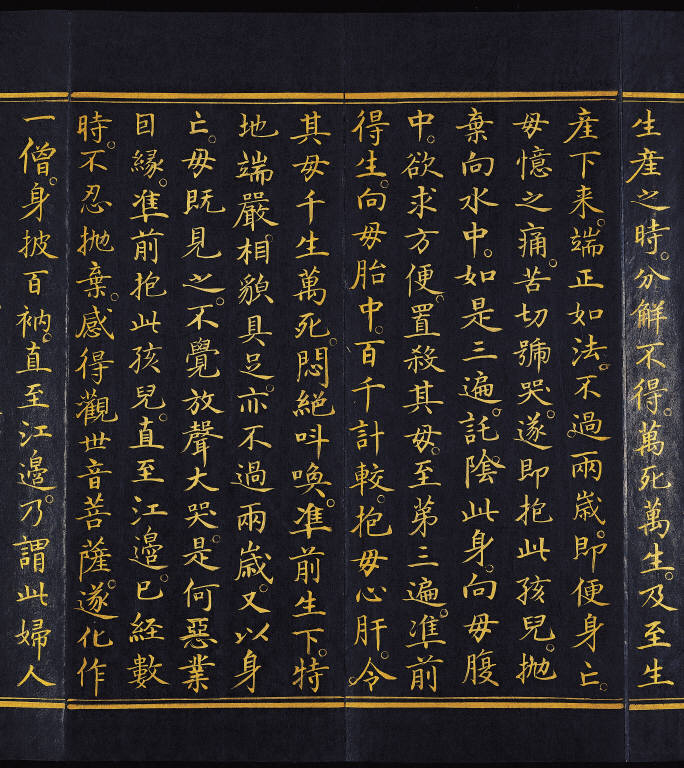 生産之時。分觧不得。萬死萬生。及至生
産下来。端正如法。不過兩歳。即便身亡。
毋憶之痛。苦切號哭。遂即抱此孩兒。抛
棄向水中。如是三遍。託隂此身。向毋腹
中。欲求方便。置殺其毋。至苐三遍。准前
得生。向毋胎中。百千計較。抱毋心肝。令
其毋千生萬死。悶絶呌喚。准前生下。特
地端嚴。相貌具足。亦不過兩歳。又以身
亡。毋既見之。不覺放聲大哭。是何惡業
目縁。准前抱此孩兒。直至江邉。已経數
時。不忍抛棄。感得觀世音菩薩。遂化作
一僧。身披百衲。直至江邉。乃謂此婦人